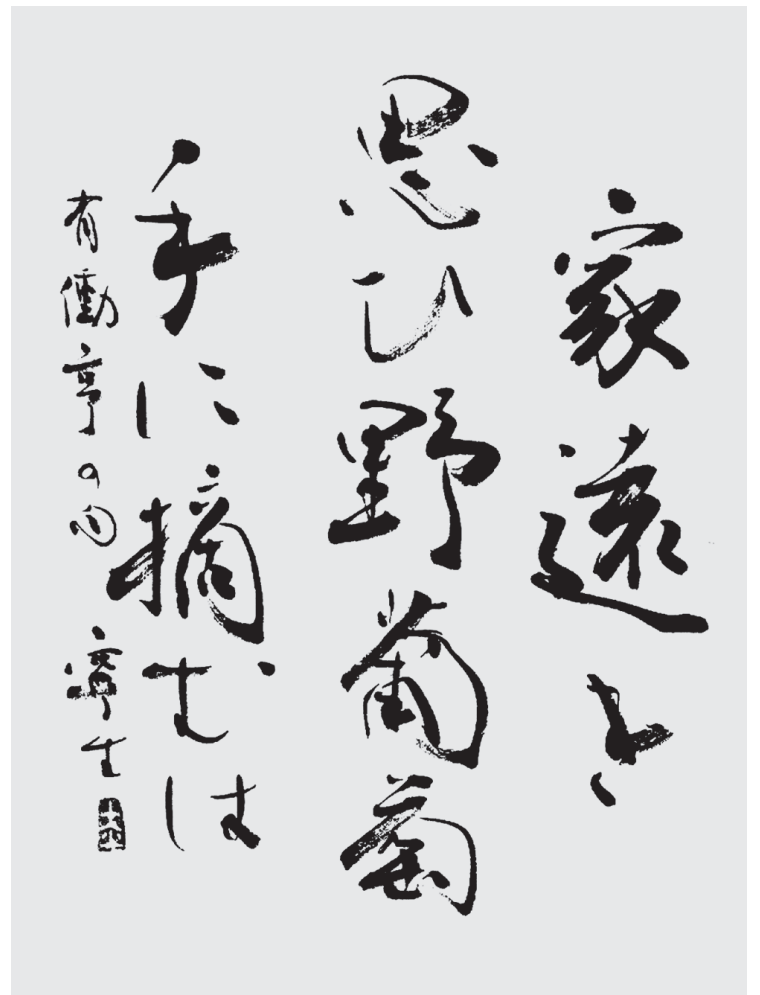 家遠き
思ひ野葡萄
手に摘むは
有働亨の句 寧生